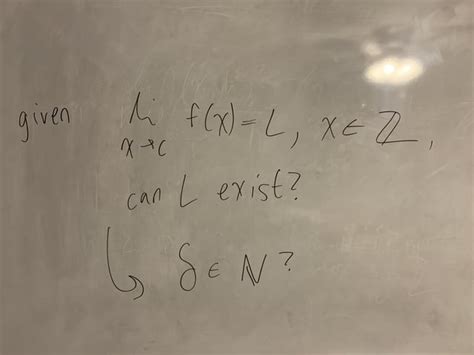 given lim f(x)=L, x∈ℤ,
x→c
can L exist?
↳ δ∈ℕ?